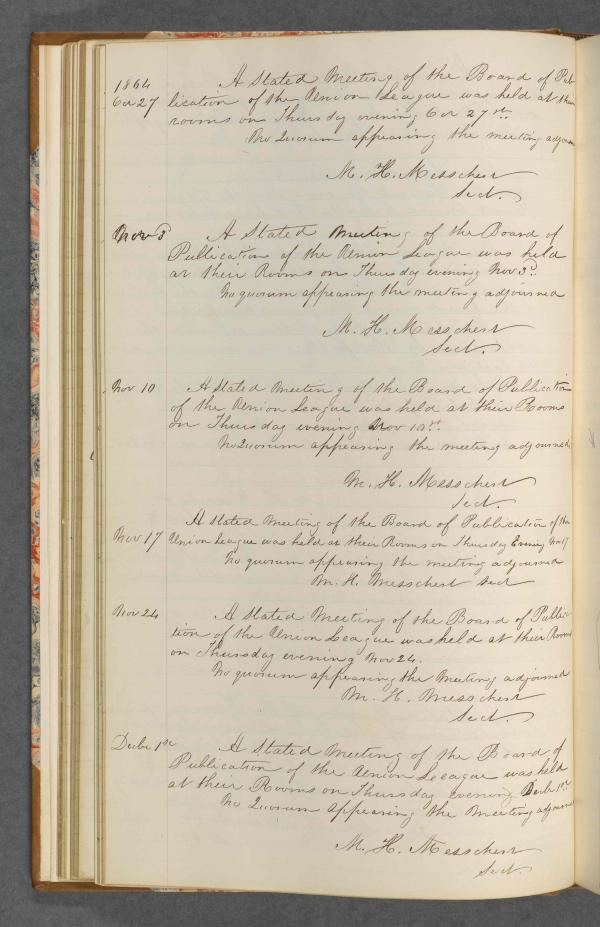 1864 A Stated Meeting of the Board of Pub
Oct 27 lication of the Union League was held at their
rooms on Thursday evening Oct 27th
No Quorum appearing the meeting adjourn
M. H. Messchert
Sect.
Nov 3 A Stated Meeting of the Board of
Publication of the Union League was held
at their Rooms on Thursday evening Nov 3d.
No quorum appearing the meeting adjourned
M. H. Messchert
Sect.
Nov 10 A Stated Meeting of the Board of Publication
of the Union League was held at their Rooms
on Thursday evening Nov 10th
No Quorum appearing the meeting adjourned
M. H. Messchert
Sect.
A Stated Meeting of the Board of Publication of the
Nov 17 Union League was held at their Rooms on Thursday Evening Nov 17
No quorum appearing the meeting adjourned
M. H. Messchert Sect
Nov 24 A Stated Meeting of the Board of Publica
tion of the Union League was held at their Rooms
on Thursday evening Nov 24.
No quorum appearing the Meeting adjourned
M. H. Messchert
Sect.
Decbr 1st A Stated Meeting of the Board of
Publication of the Union League was held
at their Rooms on Thursday evening Decbr 1st
No Quorum appearing the Meeting adjourned
M. H. Messchert
Sect.